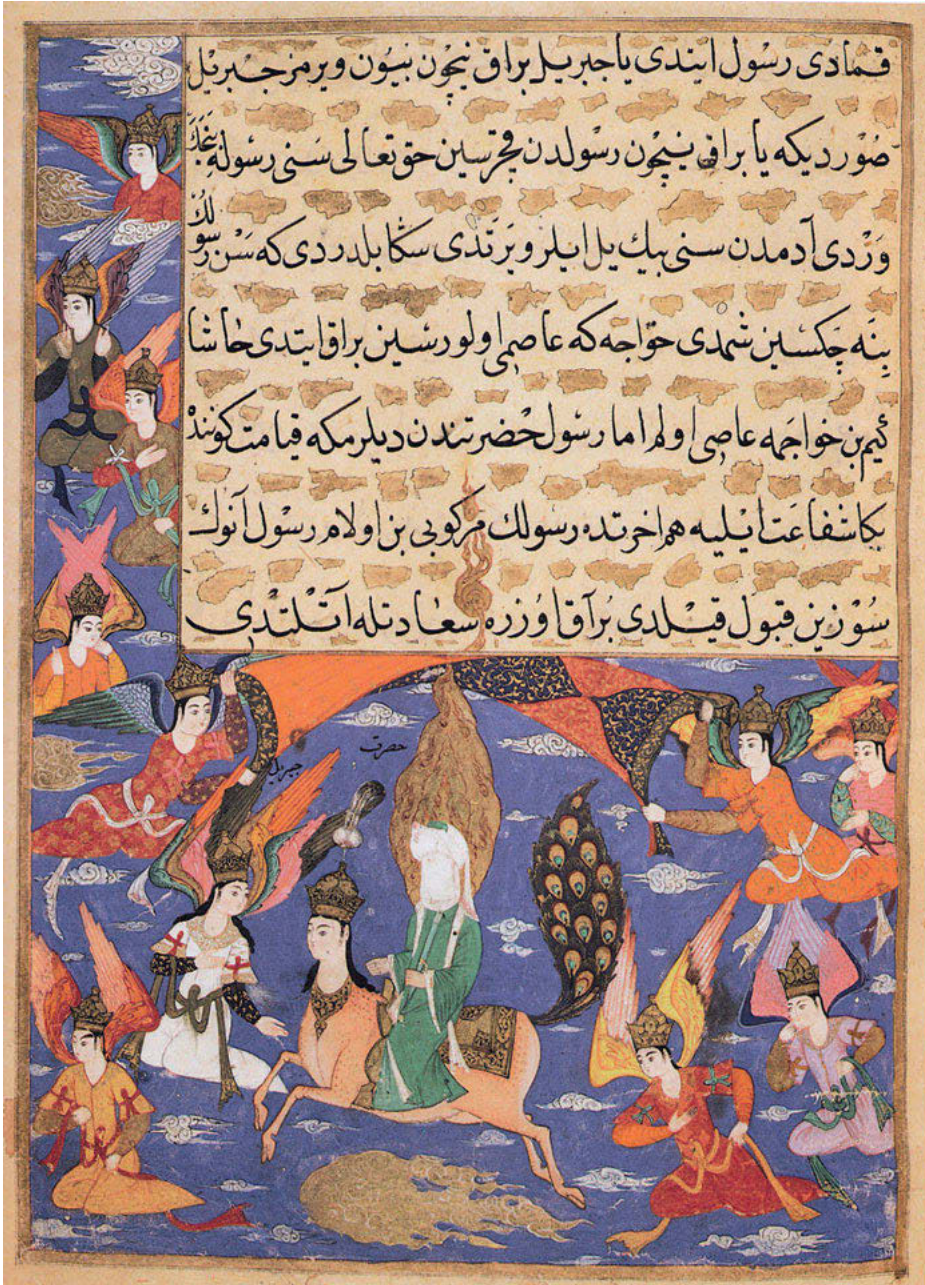 قمادی رسول ایتدی یا جبریل براق نیچون بنیون ویرمز جبرئل
صوردیکه یا براق نیچون رسولدن قچرسین حق تعالی سنی رسوله
وردی آدمدن سنی بیك یل ایلرو یرتدی سکا بلدردی که سن رسولك
بنه جکسین شمدی خواجه که عاصمی اولورسین براق ایتدی حاشا
کیم بن خواجمه عاصی اولم اما رسول حضرتندن دیلرمکه قیامت کونند
بکا شفاعت ایلیه هم اخرتده رسولك مرکوبی بن اولام رسول آنوك
سوزین قبول قیلدی براق اوزره سعادتله اتلندی
حضرت
جبریل